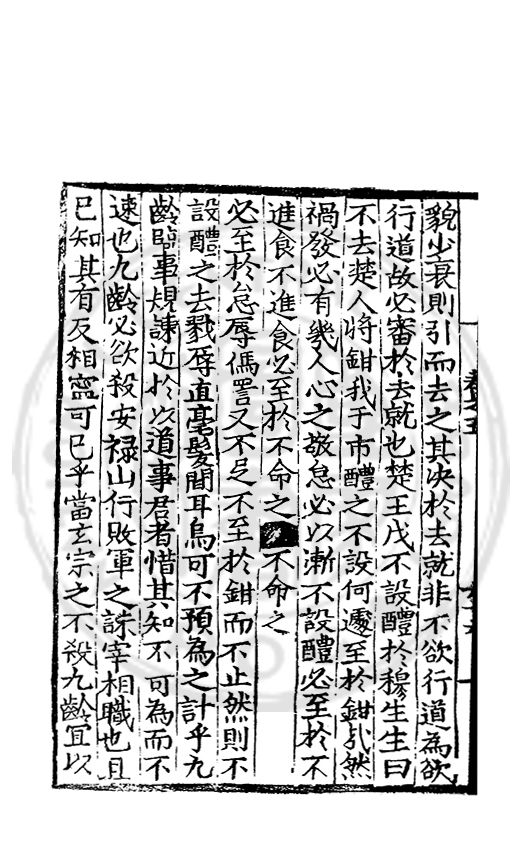 貌少衰則引而去之其决於去就非不欲行道為欲
行道故必審於去就也楚王戊不設醴於穆生生曰
不去楚人將鉗我于市醴之不設何遽至於鉗哉然
禍發必有幾人心之敬怠必以漸不設醴必至於不
進食不進食必至於不命之不命之
必至於怠辱傌詈又不足不至於鉗而不止然則不
設醴之去戮辱直毫髮間耳烏可不預為之計乎九
齡臨事規諫近於以道事君者惜其知不可為而不
速也九齡必欲殺安禄山行敗軍之誅宰相職也且
已知其有反相寧可已乎當玄宗之不殺九齡宜以